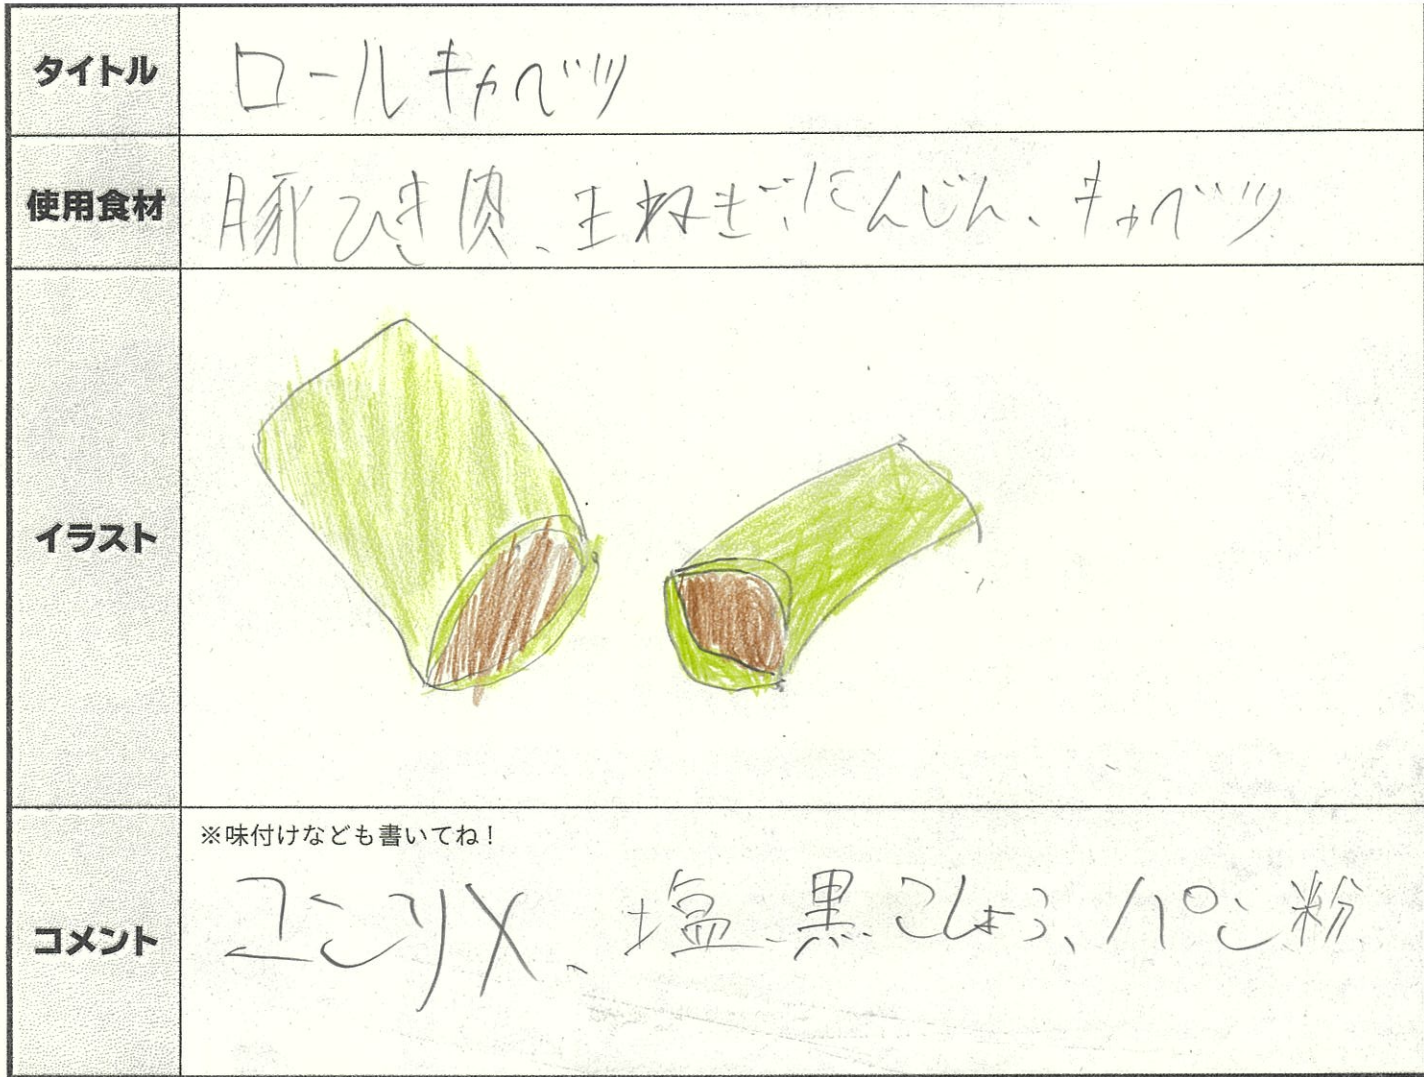 タイトル
ロールキャベツ
使用食材
豚ひき肉、玉ねぎ、にんじん、キャベツ
イラスト
※味付けなども書いてね！
コメント
コンソメ、塩、黒こしょう、パン粉